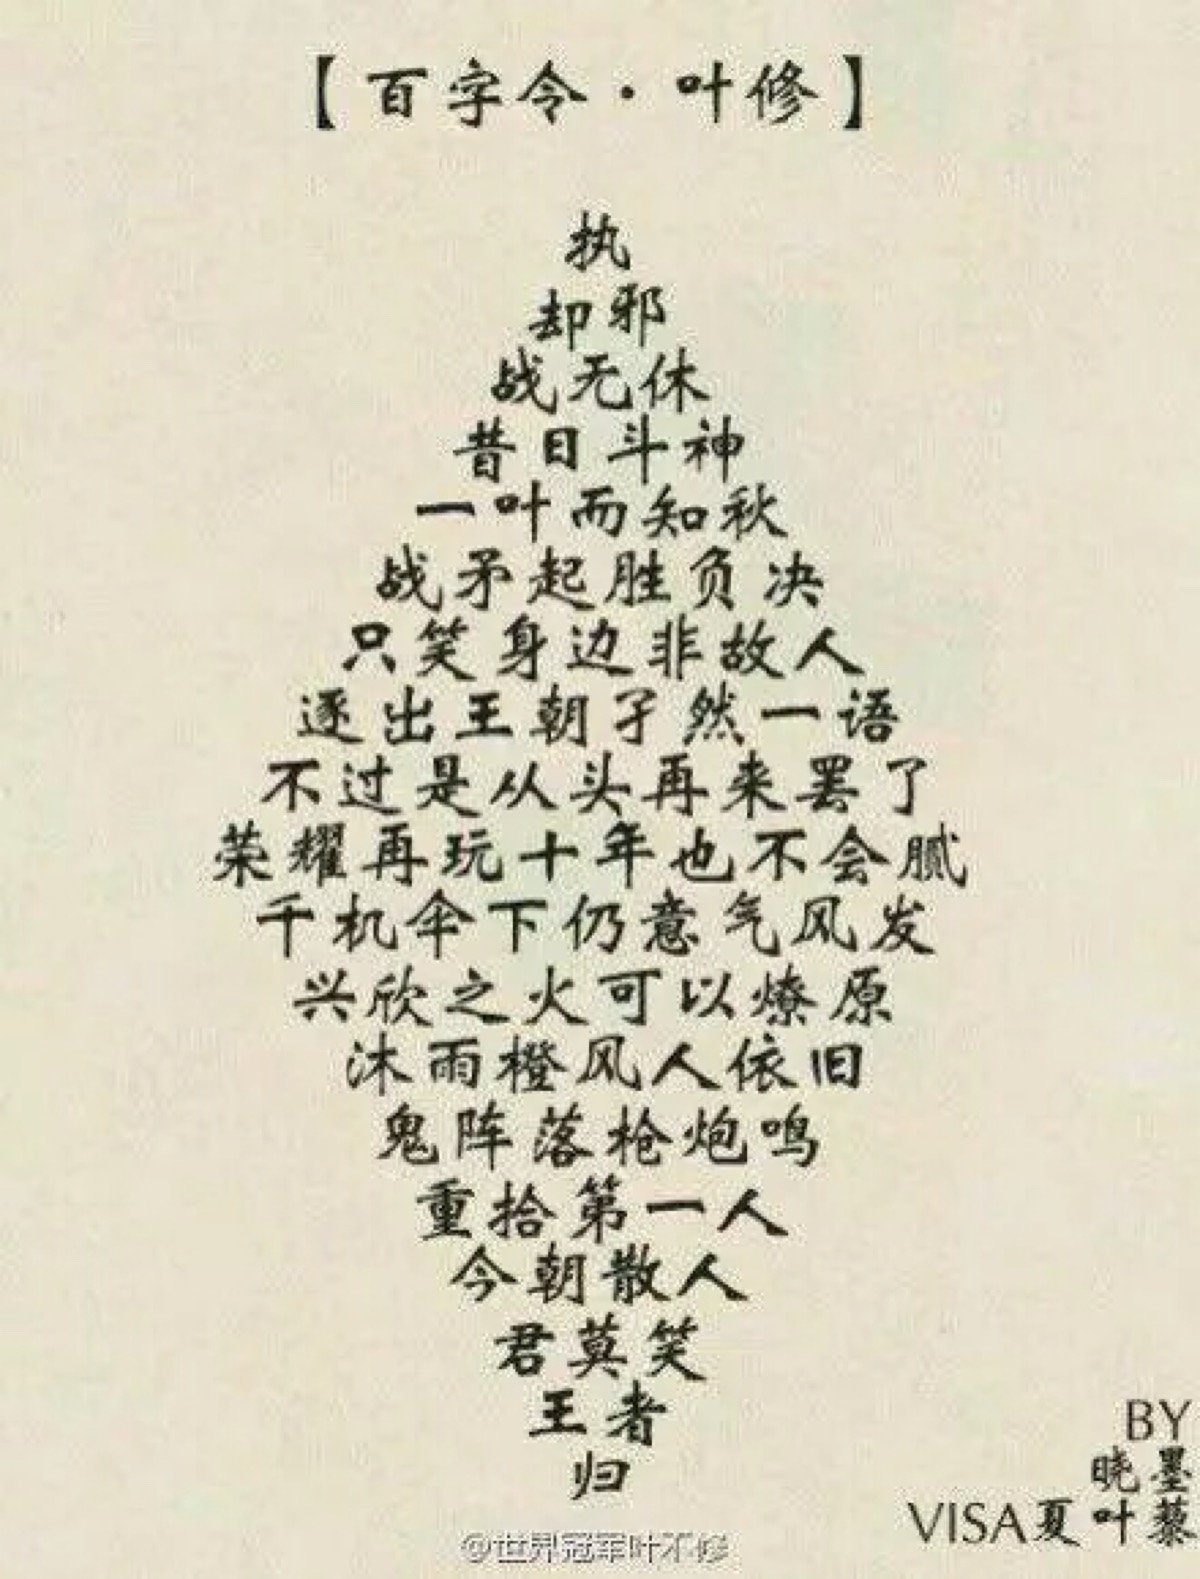 【百字令·叶修】
执
却邪
战无休
昔日斗神
一叶而知秋
战矛起胜负决
只笑身边非故人
逐出王朝孑然一语
不过是从头再来罢了
荣耀再玩十年也不会腻
千机伞下仍意气风发
兴欣之火可以燎原
沐雨橙风人依旧
鬼阵落枪炮鸣
重拾第一人
今朝散人
君莫笑
王者
归
BY
晓墨
VISA夏叶藜
@世界冠军叶不修